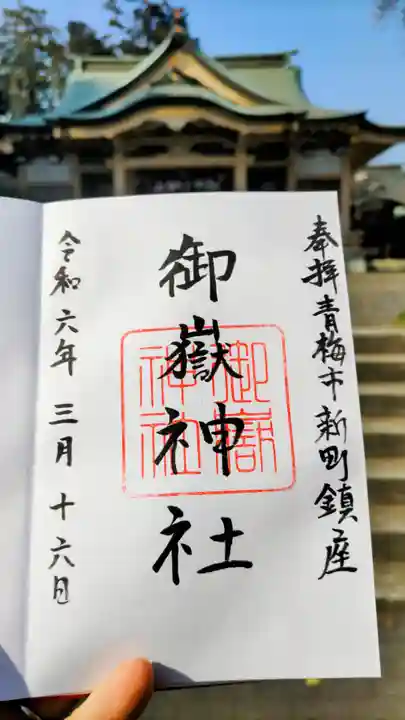 奉拝青梅市新町鎮座
御嶽神社
御嶽
神社
令和六年三月十六日